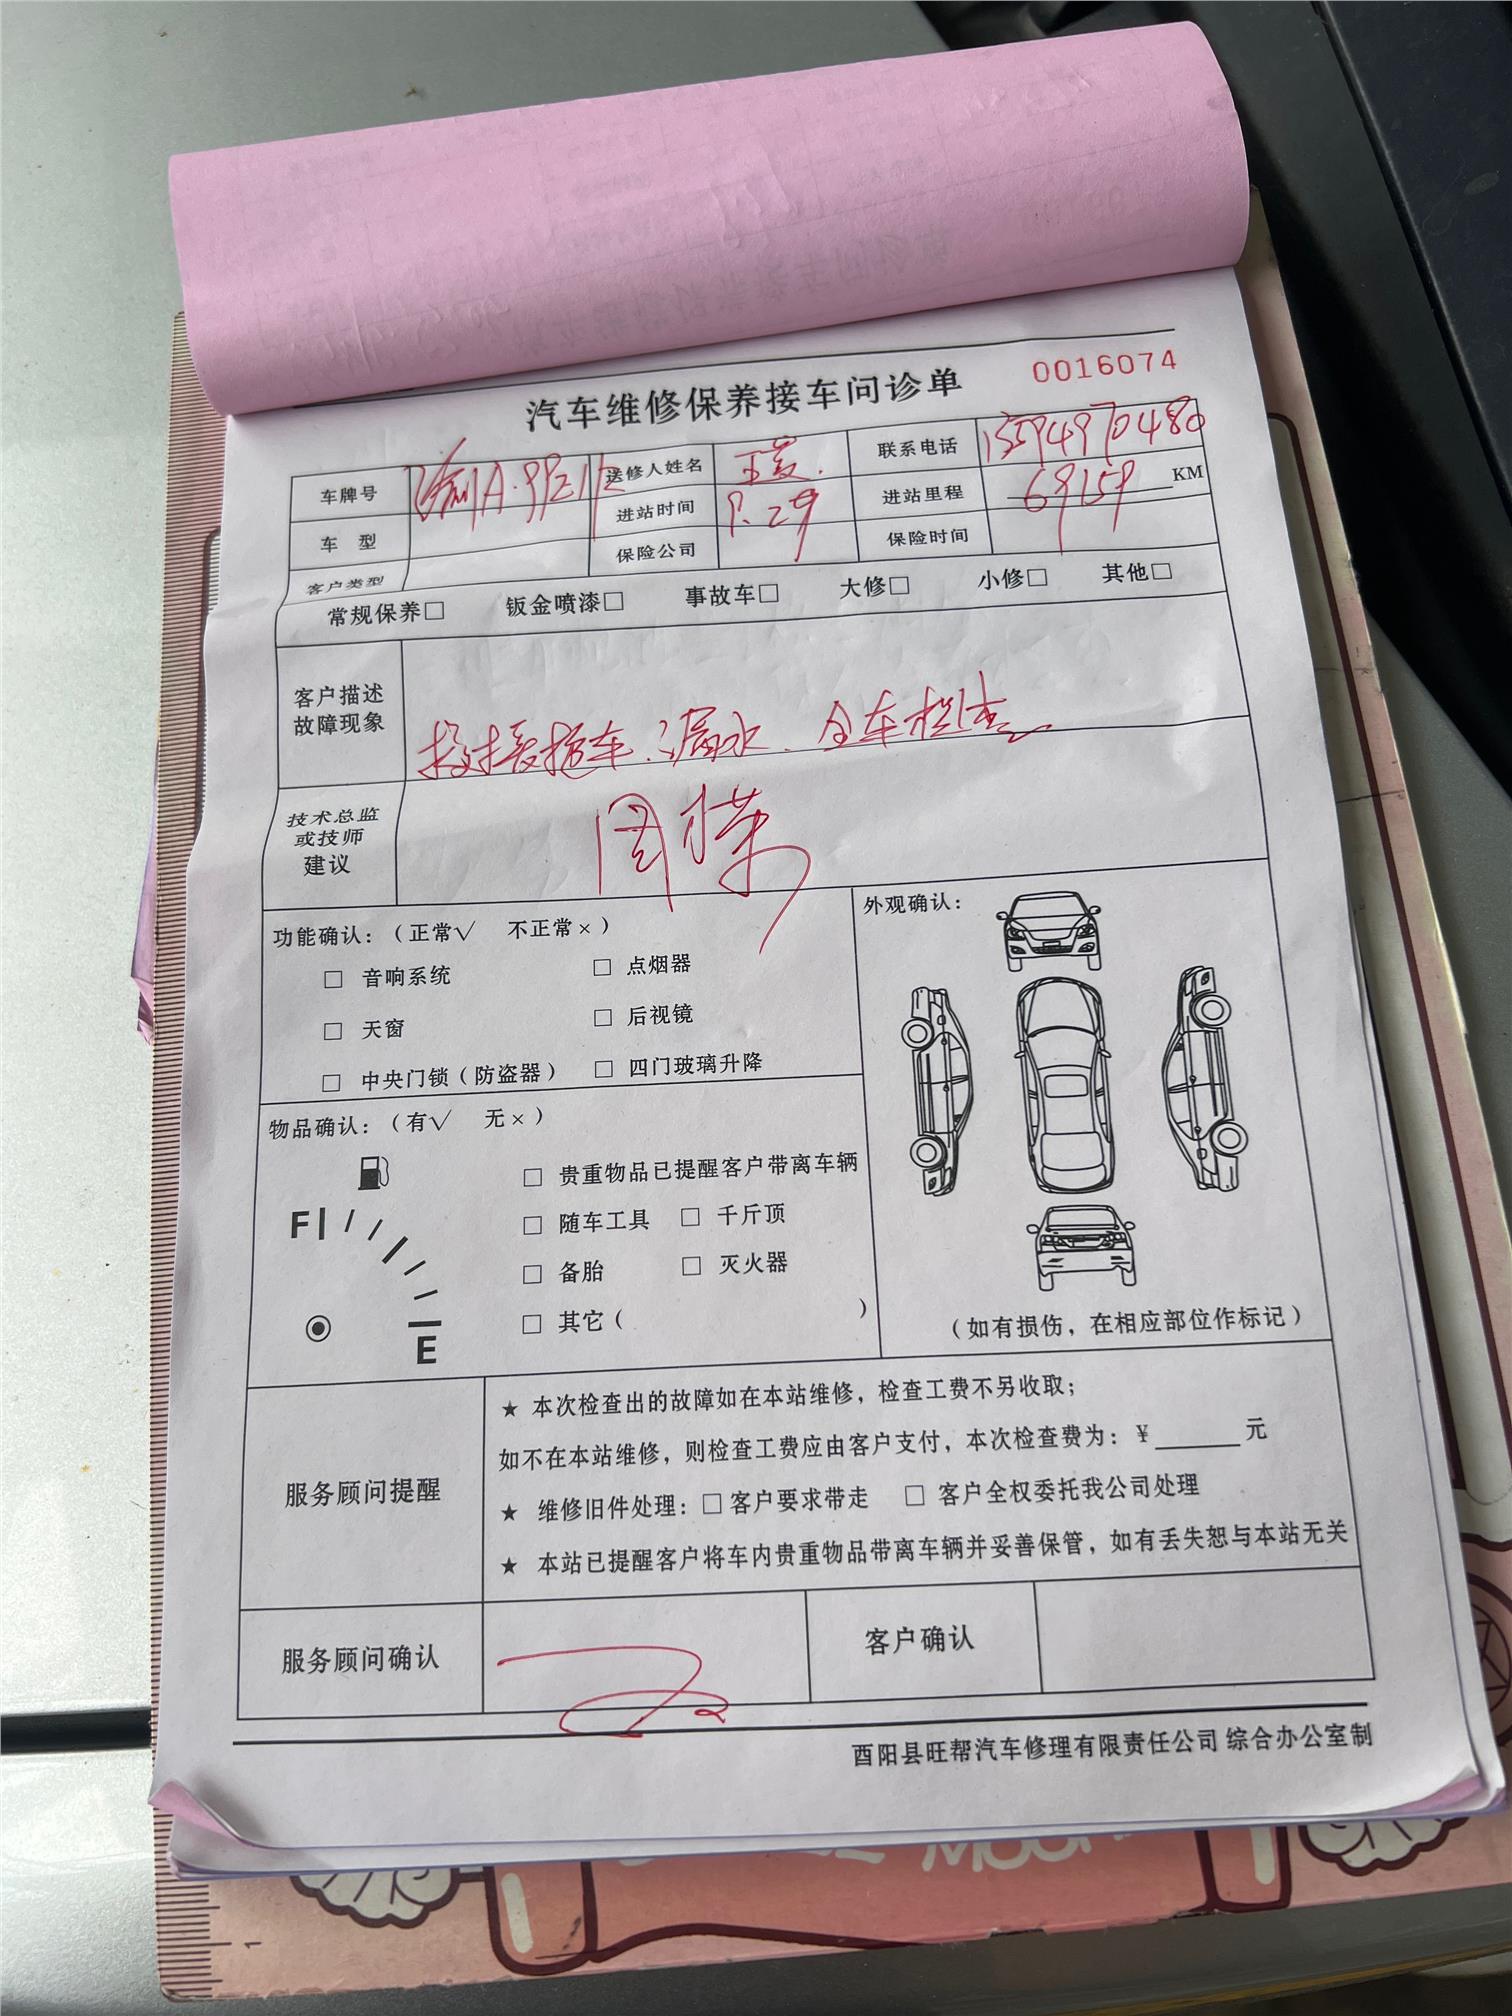 汽车维修保养接车问诊单
0016074
车牌号 渝A·99Z1 送修人姓名 联系电话 13594970480
车 型 进站时间 9.29 进站里程 69159 KM
客户类型 保险公司 保险时间
常规保养□ 钣金喷漆□ 事故车□ 大修□ 小修□ 其他□
客户描述
故障现象
拖车.漏水.全车检查
技术总监
或技师
建议
功能确认:(正常√ 不正常×)
□ 音响系统 □ 点烟器
□ 天窗 □ 后视镜
□ 中央门锁(防盗器) □ 四门玻璃升降
外观确认:
(如有损伤,在相应部位作标记)
物品确认:(有√ 无×)
F
E
□ 贵重物品已提醒客户带离车辆
□ 随车工具 □ 千斤顶
□ 备胎 □ 灭火器
□ 其它( )
服务顾问提醒
★ 本次检查出的故障如在本站维修,检查工费不另收取;
如不在本站维修,则检查工费应由客户支付,本次检查费为:¥______元
★ 维修旧件处理:□客户要求带走 □ 客户全权委托我公司处理
★ 本站已提醒客户将车内贵重物品带离车辆并妥善保管,如有丢失恕与本站无关
服务顾问确认 客户确认
酉阳县旺帮汽车修理有限责任公司 综合办公室制